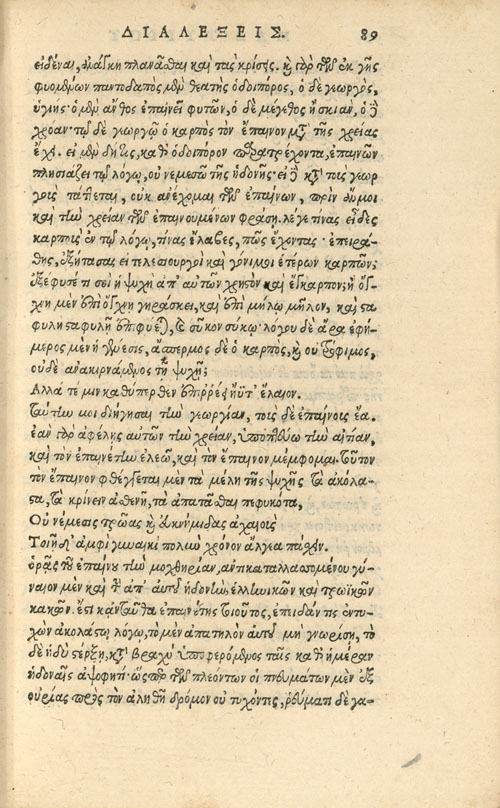 ΔΙΑΛΕΞΕΙΣ. 89
εἰδέναι, ἀνάγκη πλανᾶσθαι καὶ τὰς κρίσεις. καὶ γὰρ τῶν ἐκ γῆς
φυομένων παντοδαπὸς μὲν θεατὴς ὁδοιπόρος, ὁ δὲ γεωργὸς,
ὁ μὲν ἄνθος ἐπαινεῖ φυτῶν, ὁ δὲ μέγεθος ἢ σκιὰν, ὁ
χρόαν· τῷ δὲ γεωργῷ ὁ καρπὸς τὸν ἔπαινον μετὰ τῆς χρείας
ἔχει. εἰ μὲν δή τις, καθ' ὁδοιπόρον παρατρέχοντα, ἐπαινῶν
πλησιάζει τῷ λόγῳ, οὐ νεμεσῶ τῆς ἡδονῆς· εἰ κατὰ τοὺς γεωρ
γοὺς τάττεται, οὐκ ἀνέχομαι τῶν ἐπαίνων, πρὶν ἄν μοι
καὶ τὴν χρείαν τῶν ἐπαινουμένων φράσῃ. λέγε τίνας εἶδες
καρποὺς ἐν τῷ λόγῳ, τίνας ἔλαβες, πῶς ἔχοντας· ἐπειρά-
θης, ἐξήτασας εἰ τελεσιουργοὶ καὶ γόνιμοι ἑτέρων καρπῶν;
ἐξέφυσέ τι σοὶ ἡ ψυχὴ ἀπ' αὐτῶν χρηστὸν καὶ ἔγκαρπον; ἢ ὄγ
χνη μὲν ἐπὶ ὄγχνη γηράσκει, καὶ ἐπὶ μήλῳ μῆλον, καὶ στα
φυλὴ σταφυλῇ ἐπιφύεται, καὶ σῦκον σύκῳ· λόγου δὲ ἄρα ἐφή-
μερος μὲν ἡ γεύεσις, ἄσπερμος δὲ ὁ καρπὸς, καὶ οὐ τρόφιμος,
οὐδὲ ἀνακιρνάμενος τῇ ψυχῇ;
Ἀλλά τέ μιν καθύπερθεν ἐπιρρέει ἠΰτ' ἔλαιον.
Ταύτην μοι διήγησαι τὴν γεωργίαν, τοὺς δὲ ἐπαίνους ἔα.
ἐὰν γὰρ ἀφέλῃς αὐτῶν τὴν χρείαν, ὑποπτεύω τὴν αἰτίαν,
καὶ τὸν ἐπαινέτην ἐλεῶ, καὶ τὸν ἔπαινον μέμφομαι. τοῦτον
τὸν ἔπαινον φθέγγεται μὲν τὰ μέλη τῆς ψυχῆς τὰ ἀκόλα-
στα, τὰ κρίνειν ἀσθενῆ, τὰ ἀπατᾶσθαι πεφυκότα,
Οὐ νέμεσις τρῶας καὶ ἐϋκνήμιδας ἀχαιοὺς
Τοιῇ δ' ἀμφὶ γυναικὶ πολὺν χρόνον ἄλγεα πάσχειν.
ὁρᾷς τοῦ ἐπαίνου τὴν μοχθηρίαν, ἀντικαταλλασσομένου γύ-
ναιον μὲν καὶ τὴν ἀπ' αὐτοῦ ἡδονὴν, ἑλληνικῶν καὶ τρωϊκῶν
κακῶν. ἔστι κἀνταῦθα ἐπαινέτης τοιοῦτος, ἐπειδάν τις ἐντυ-
χὼν ἀκολάστῳ λόγῳ, τὸ μὲν ἀπατηλὸν αὐτοῦ μὴ γνωρίσῃ, τὸ
δὲ ἡδὺ στέρξῃ, κατὰ βραχὺ ὑποφερόμενος ταῖς καθ' ἡμέραν
ἡδοναῖς ἀψοφητί· ὥσπερ τῶν πλεόντων οἱ πνευμάτων μὲν ἐξ
ουρίας πρὸς τὸν ἀληθῆ δρόμον οὐ τυχόντες, ῥεύματι δὲ γα-